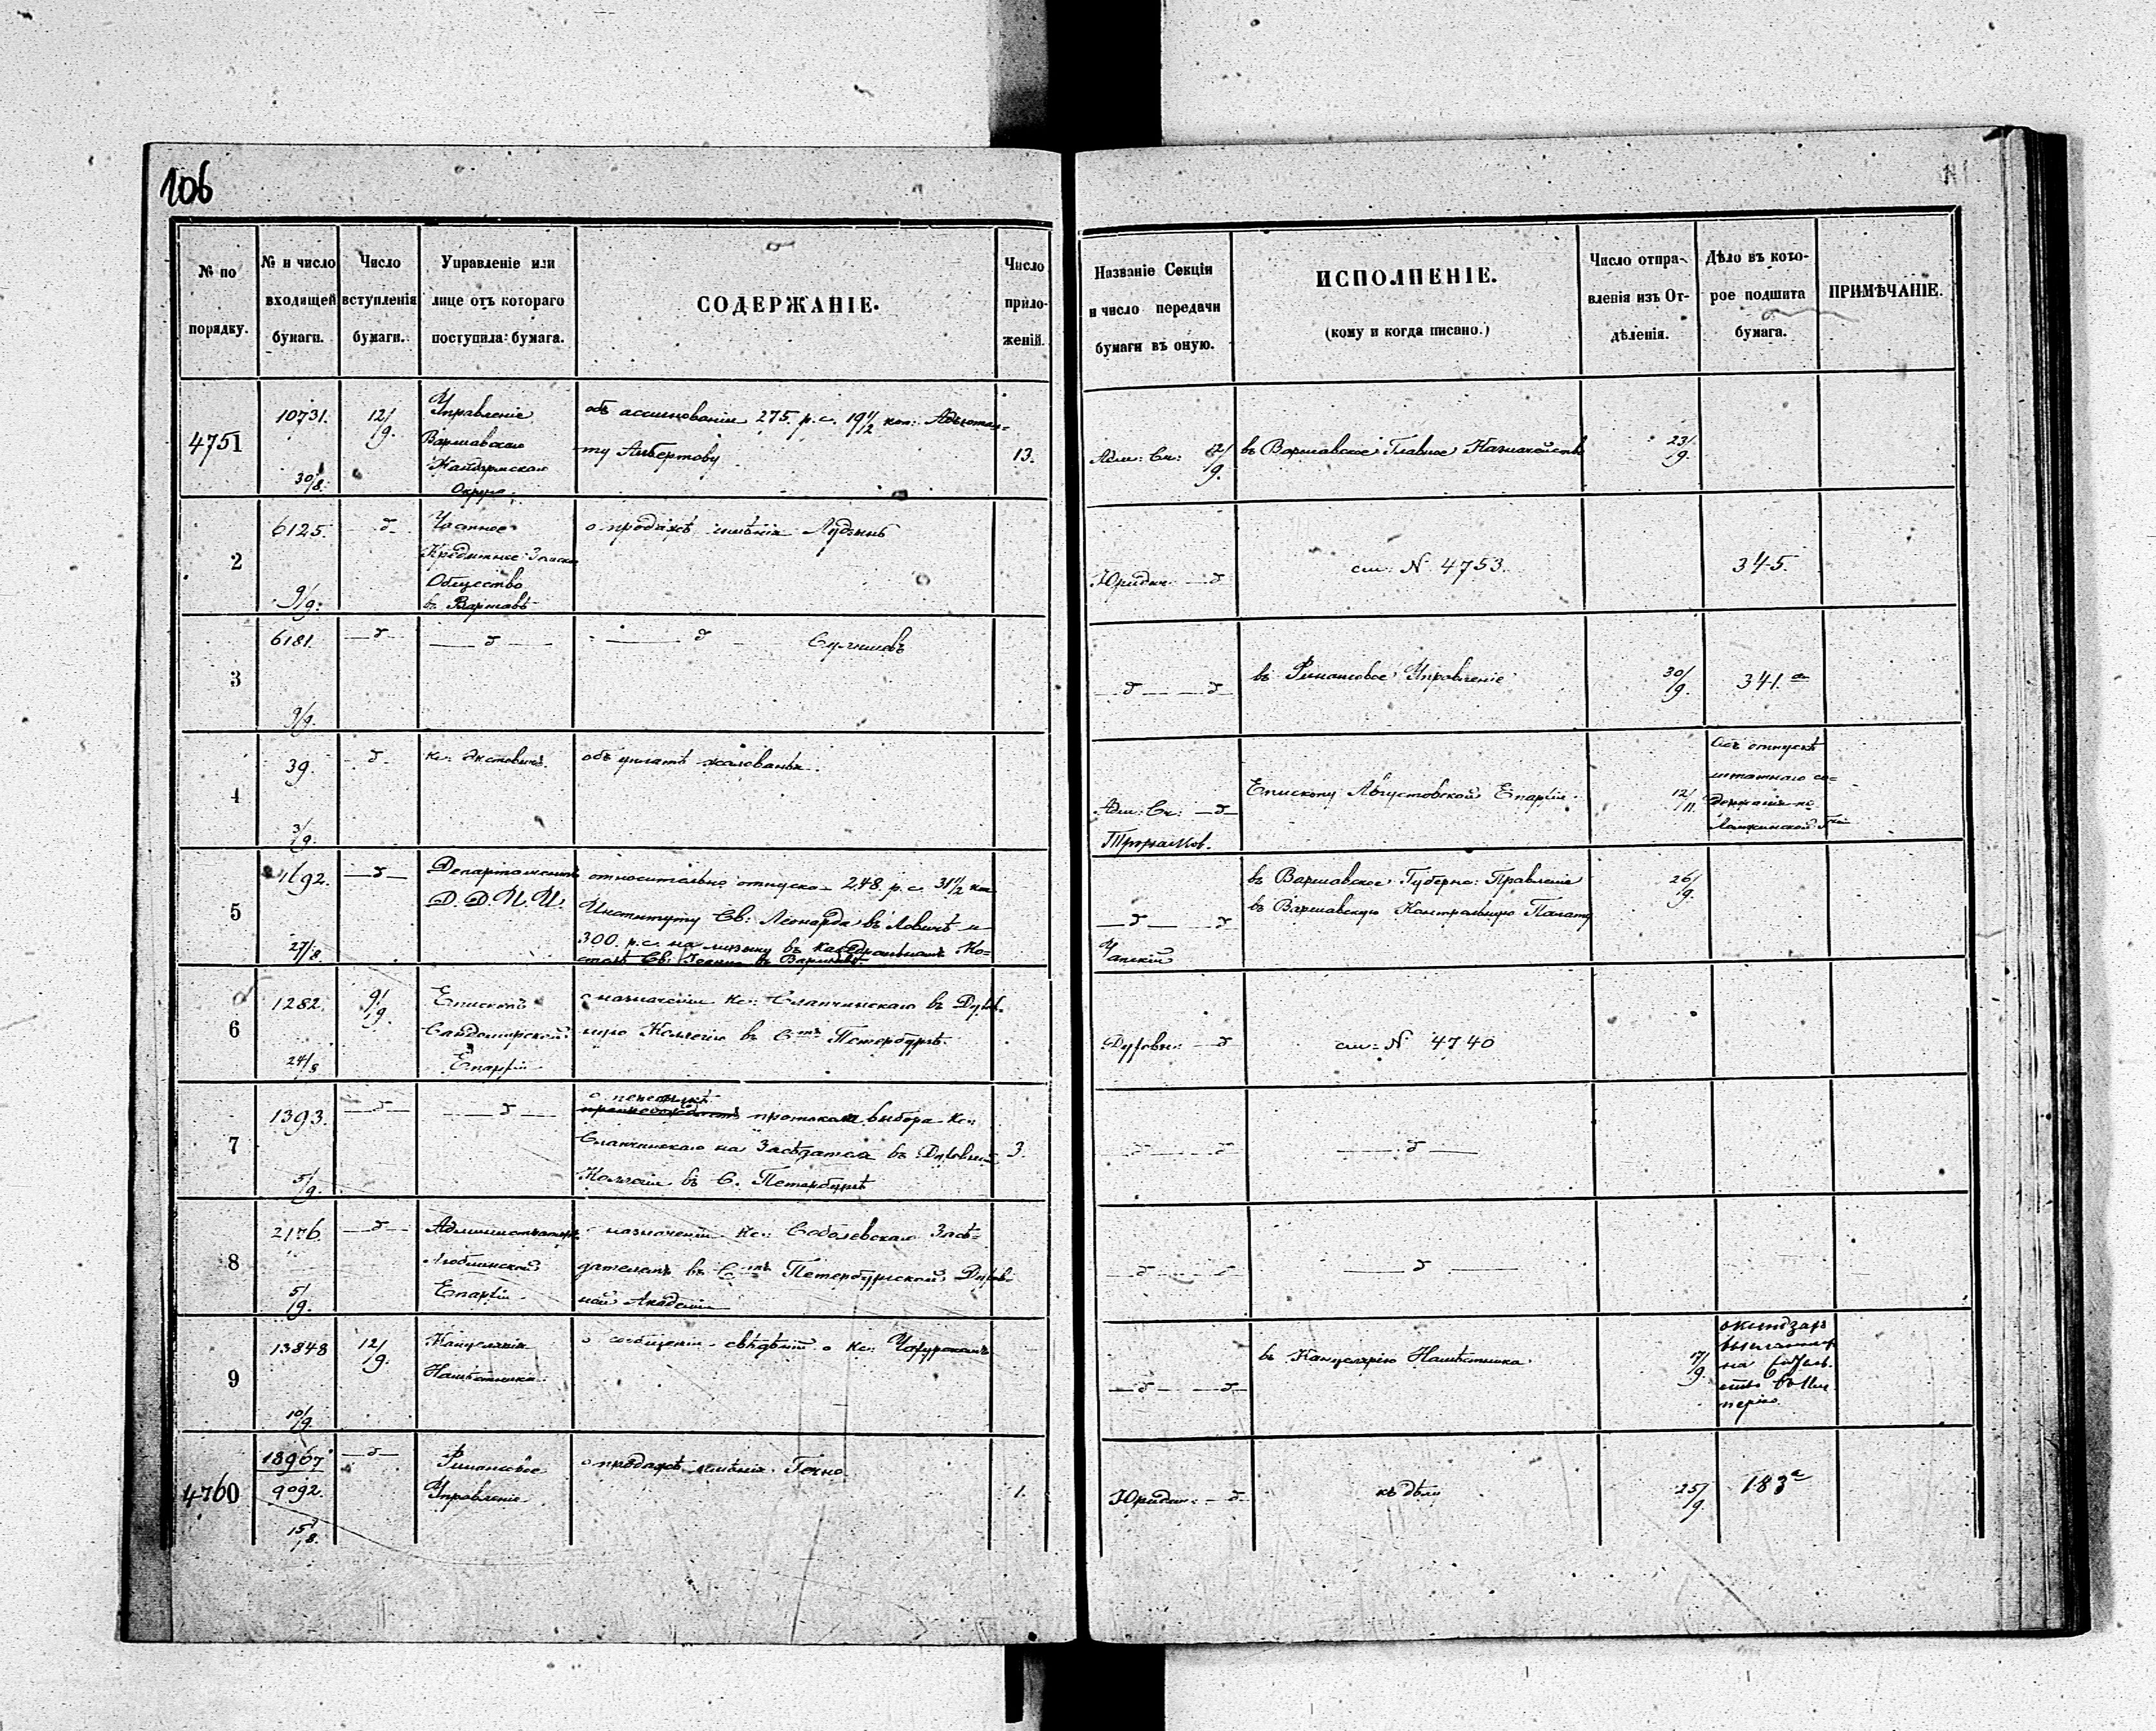 106
№ по
порядку.
№ и число
входящей
бумаги.
Число
вступленія
бумаги.
Управленіе или
лице отъ котораго
поступила бумага.
СОДЕРЖАНІЕ.
Число
прило-
женій.
Названіе Секціи
и число передачи
бумаги въ оную.
ИСПОЛНЕНІЕ.
(кому и когда писано.)
Число отпра-
вленія изъ От-
дѣленія.
Дѣло въ кото-
рое подшита
бумага.
ПРИМѢЧАНІЕ.
4751
10731.
30/8.
12/9.
Управленіе
Варшавскаго
Жандармскаго
Округа
объ ассигнованіи 275. р. с. 19 1/2 коп: Адъютан-
ту Альбертову
13.
Адм: Ск: 12/9.
въ Варшавское Главное Казначейство
23/9.
2
6125.
9/9.
д
Частное
Кредитное Земское
Общество
въ Варшавѣ
о продажѣ имѣнія
Юридич: д
см: N 4753.
345.
3
6181.
9/9.
д
д
д
д д
въ Финансовое Управленіе
30/9.
341. а
4
39.
3/9.
д
Кс:
объ уплатѣ жалованья.
Адм: Ск: д
Епископу Августовской Епархіи
12/11.
Объ отпускѣ
штатнаго со-
держанія по
Ломжинской Губ:
5
4692.
27/8.
д
Департаментъ
Д. Д. И. И.
относительно отпуска 248. р. с. 31 1/2 коп
Институту Св: Леонарда въ Ловичѣ и
300. р. с. на музыку въ Кафедральномъ Ко-
стелѣ Св: Іоанна въ Варшавѣ.
д д
въ Варшавское Губерн: Правленіе
въ Варшавскую Контрольную Палату
26/9.
6
1282.
24/8
9/9.
Епископъ
Сандомирской
Епархіи
о назначеніи Кс: Сланчинскаго въ Духов-
ную Коллегію въ С-тъ Петербургѣ.
Духовн: д
см: N 4740
7
1393.
5/9.
д
д
о пересылкѣ
протокола выбора Кс:
Сланчинскаго на Засѣдателя въ Духовной
Коллегіи въ С. Петербургѣ
3.
д д
д
8
2176.
5/9.
д
Администраторъ
Люблинской
Епархіи
о назначеніи Кс: Соболевскаго Засѣ-
дателемъ въ С-тъ Петербургской Духов-
ной Академіи
д д
д
9
13848
10/9.
12/9.
Канцелярія
Намѣстника.
о сообщеніи свѣдѣній о Кс:
д д
въ Канцелярію Намѣстника.
17/9.
о ксендзахъ
на
въ Им-
перію.
4760
18967
9092.
15/8.
д
Финансовое
Управленіе
о продажѣ имѣнія
1.
Юридич: д
къ дѣлу
25/9
183 а